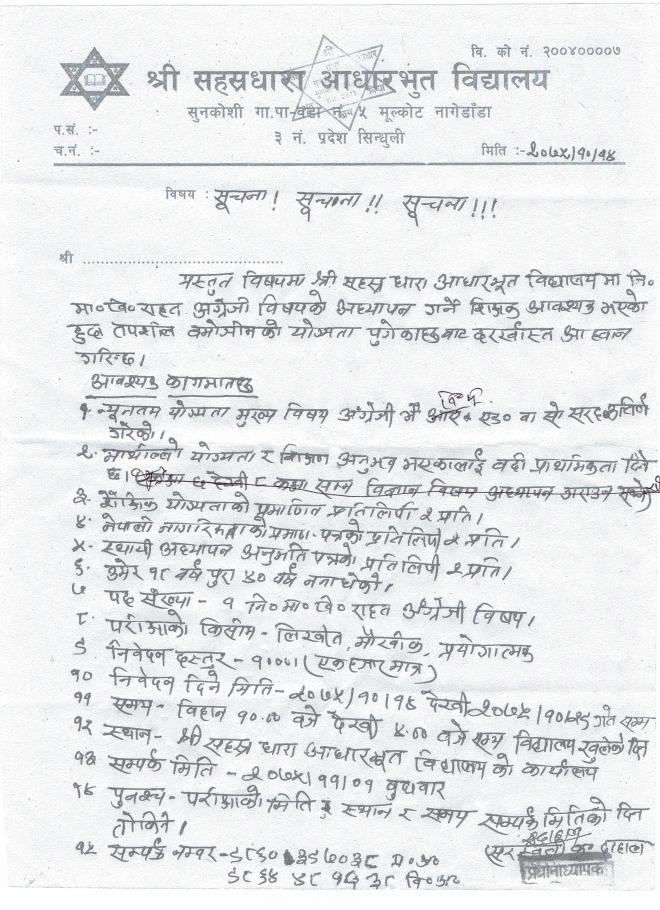 वि. को नं. २००४००००७
श्री सहस्रधारा आधारभुत विद्यालय
सुनकोशी गा.पा-वडा नं. ५ मूल्कोट नागेडाँडा
प.सं. :-
३ नं. प्रदेश सिन्धुली
च.नं. :-
मिति :-२०७५/१०/१४
विषय : सूचना! सूचाना!! सूचना!!!
श्री ........................................
प्रस्तुत विषयमा श्री सहस्र धारा आधारभूत विद्यालय मा नि०
मा०वि० राहत अंग्रेजी विषयको अध्यापन गर्ने शिक्षक आवश्यक भएको
हुदा तपशील वमोजीमको योग्यता पुगेकाहरुबाट दरखास्त आह्वान
गरिन्छ।
आवश्यक कागजातहरु
१. न्यूनतम योग्यता मुख्य विषय अंग्रेजी मै एड० वा सो सरह उतिर्ण
गरेको।
२. माथील्लो योग्यता र शिक्षण अनुभव भएकालाई वढी प्राथमिकता दिने
छ।
३. शैक्षिक योग्यताको प्रमाणित प्रतिलिपी २ प्रति।
४. नेपाली नागरिकताको प्रमाण-पत्रको प्रतिलिपी २ प्रति।
५. स्थायी अध्यापन अनुमति पत्रको प्रतिलिपी २ प्रति।
६. उमेर १८ वर्ष पुरा ४० वर्ष ननाघेको।
७ पद संख्या - १ नि०मा०वि० राहत अंग्रेजी विषय।
८. परीक्षाको किसीम - लिखीत, मौखीक, प्रयोगात्मक
९ निवेदन दस्तुर - १०००। (एक हजार मात्र)
१० निवेदन दिने मिति - २०७५/१०/१५ देखी २०७५/१०/२९ गते सम्म
११ समय - विहान १०.०० वजे देखी ४.०० वजे सम्म विद्यालय खुलेको दिन
१२ स्थान - श्री सहस्र धारा आधारभूत विद्यालय को कार्यालय
१३ सम्पर्क मिति - २०७५/११/०१ वुधवार
१४ पुनश्च - परीक्षाको मिति र स्थान र समय सम्पर्क मितिको दिन
तोकिने।
१५ सम्पर्क नम्वर - प्र०अ०
वि०अ०
दाहाल)
प्रधानाध्यापक